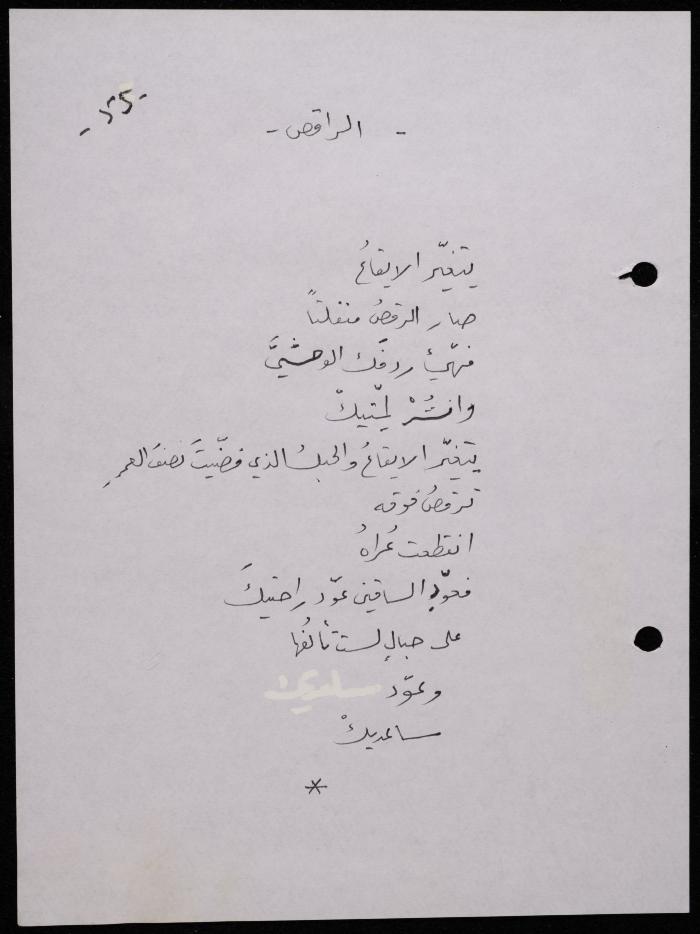 - الراقص -
يتغيّر الايقاعُ
صار الرقصُ منفلتاً
فهيّئ ردفَك الوحشيَّ
وانشُرْ لِمّتيكْ
يتغيّر الايقاعُ والحبلُ الذي قضّيتَ نصفَ العمرِ
ترقصُ فوقه
انقطعت عُراهُ
فعوّدِ الساقين عوّد راحتيكَ
على حبالٍ لست تألفُها
وعوّد
ساعديكْ
*